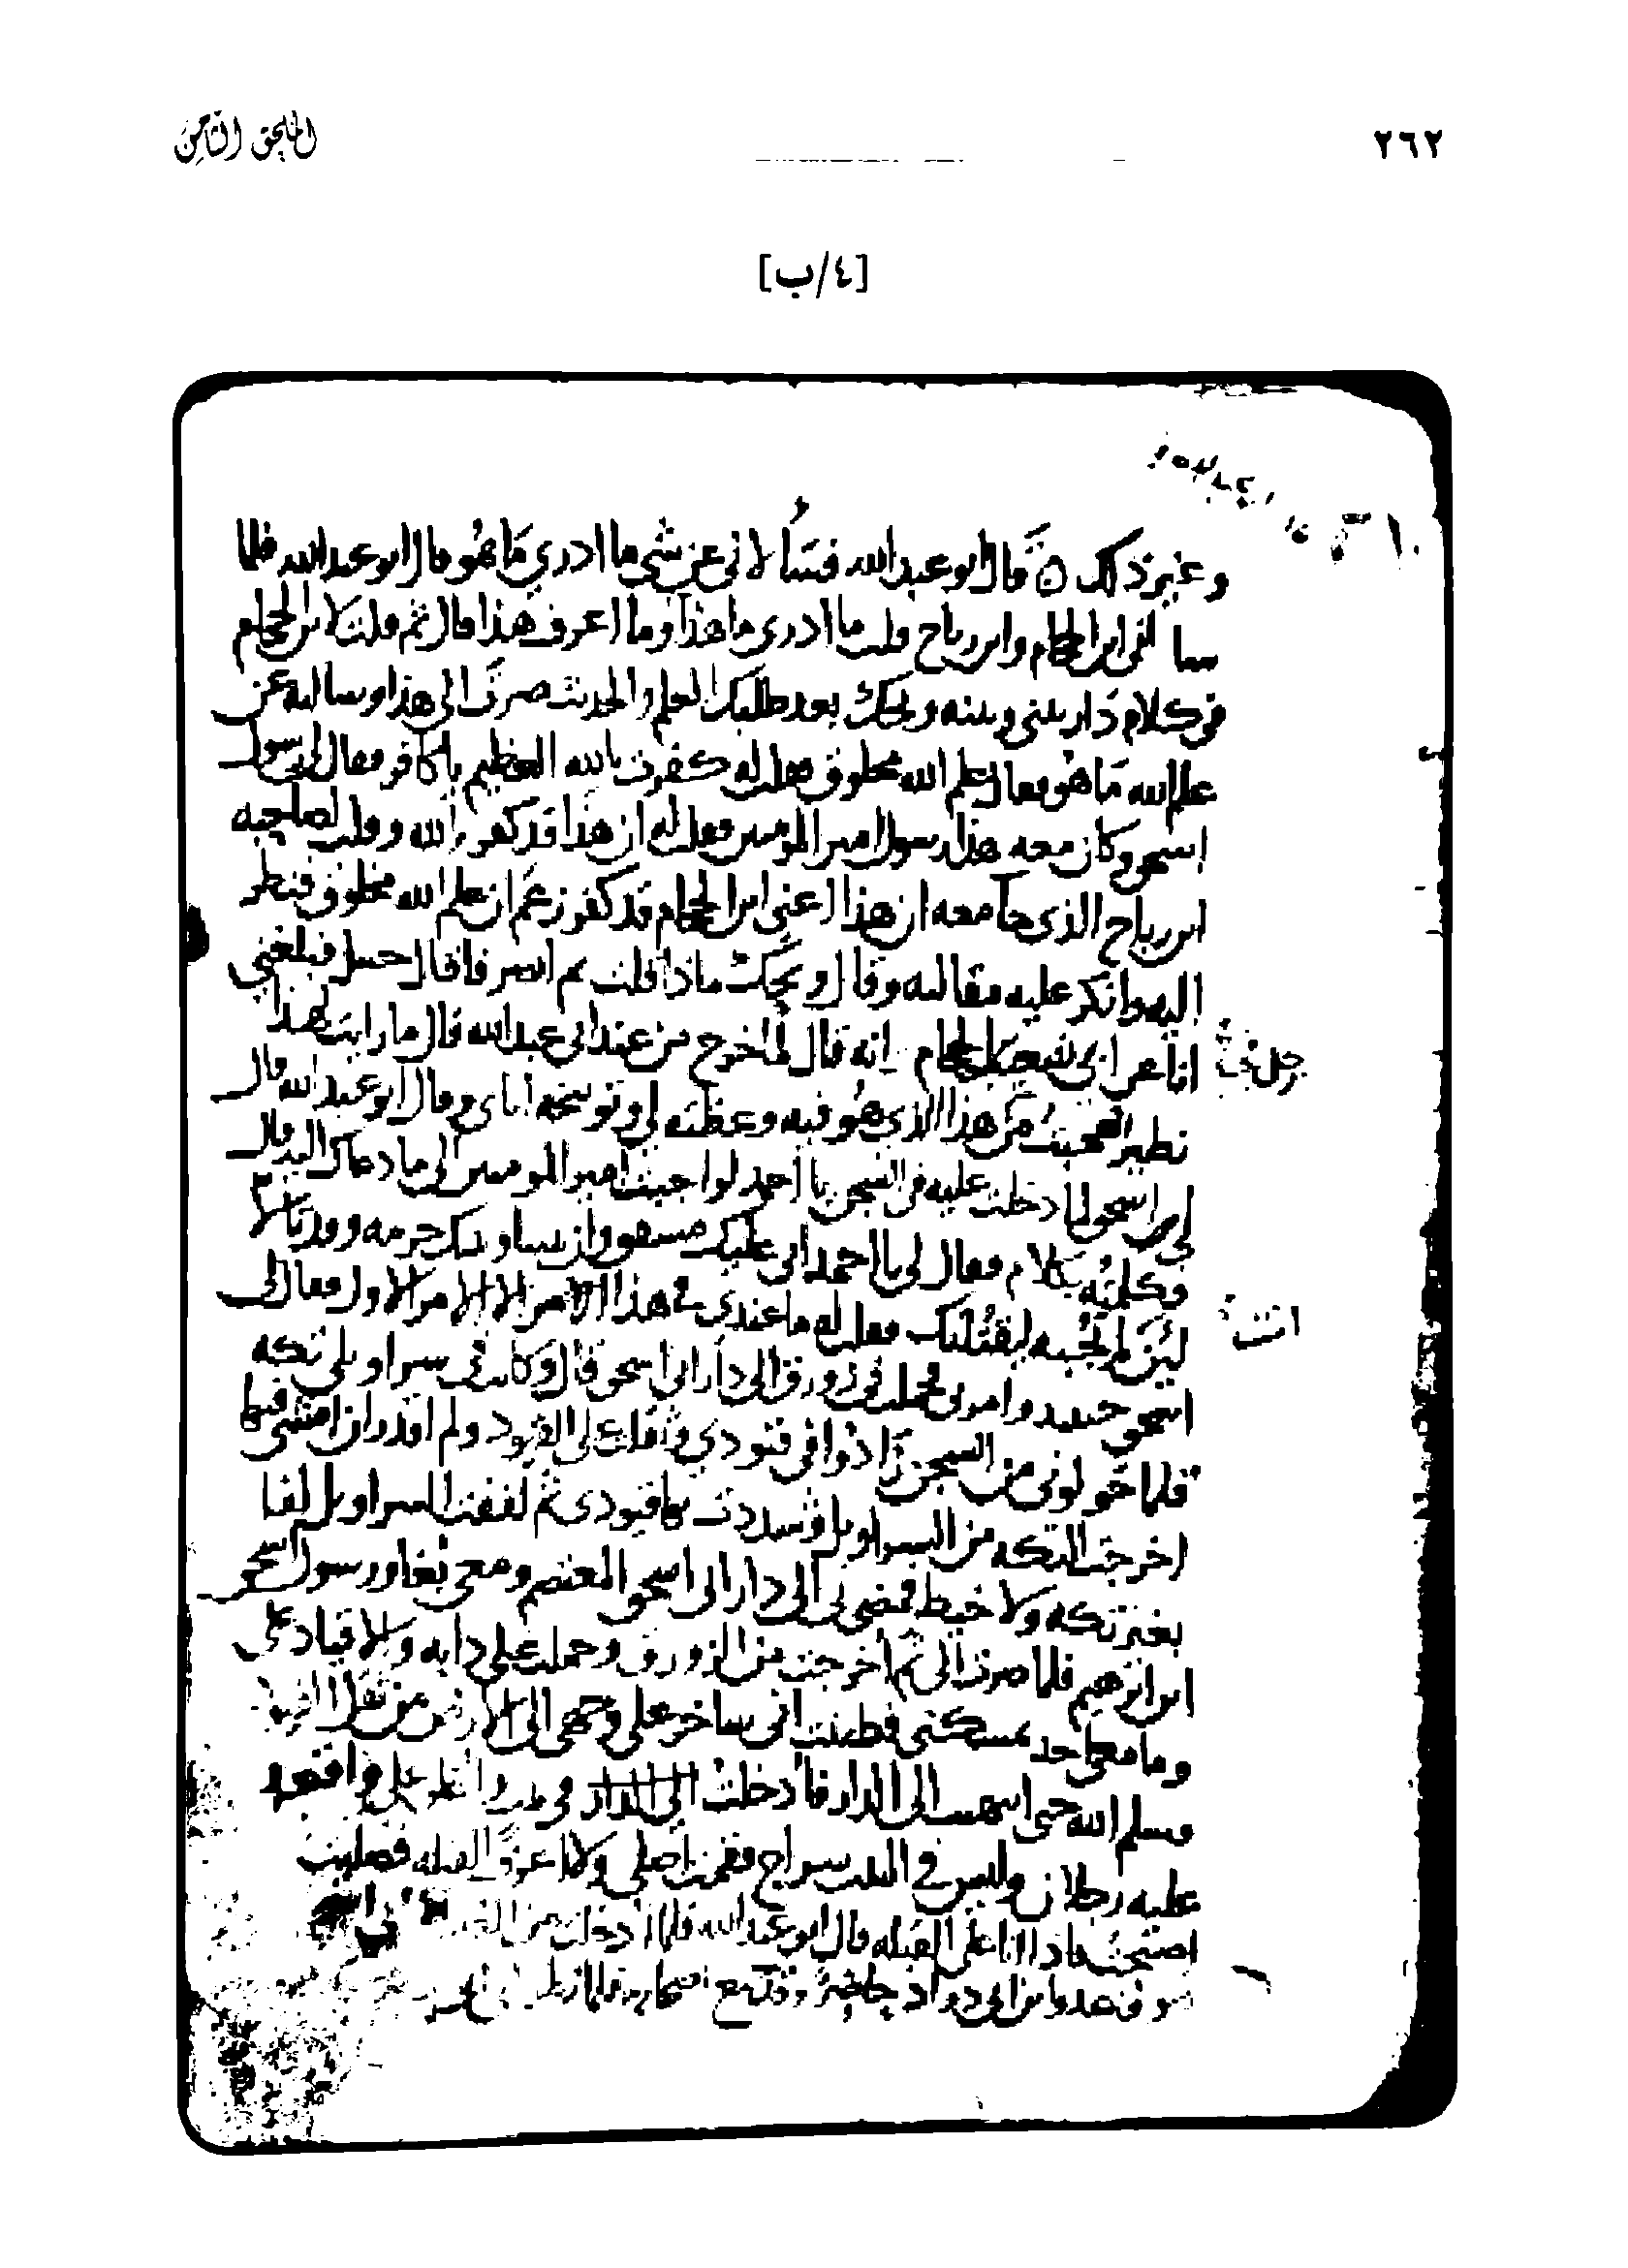 ٢٦٢
الملحق الثامن
[٤/ب]
وغير ذلك ٥ قال ابو عبد الله فسألاني عن شي ما ادري ما هو قال ابو عبد الله فلما
سالني ابن الحجام وابن رباح قلت ما ادري ما هذا وما اعرف هذا قال ثم قلت لابن الحجام
في كلام دار بيني وبينه ويحك بعد طلبك العلم والحديث صرت الى هذا وسالته عن
علم الله ما هو فقال علم الله مخلوق فقلت له كفرت بالله العظيم يا كافر فقال لي رسول
اسحق وكان معه هذا رسول امير المومنين فقلت له ان هذا قد كفر بالله وقلت لصاحبه
ابن رباح الذي جا معه ان هذا اعني ابن الحجام قد كفر زعم ان علم الله مخلوق فنظر
اليه وانكر عليه مقالته وقال ويحك ماذا قلت ثم انصرفا قال حنبل فبلغني
انا عن ابي شعيب الحجام انه قال لما خرج من عند ابي عبد الله قال ما رايت لهذا
رجل
نظير العجب من هذا الذي هو فيه وعظته لي وتوبيخه اياي وقال ابو عبد الله قال
لي اسحق لما دخلت عليه في السجن يا احمد لو اجبت امير المومنين الى ما دعاك اليه قال
وكلمته بكلام فقال لي يا احمد اني عليك مشفق وان بيننا وبينك حرمة
انت
لئن لم تجبه ليقتلنك فقلت له ما عندي في هذا الامر الا الامر الاول فقال لي
اسحق حينيد وامر بي فحملت في زورق الى دار ابي اسحق قال وكانت في سراويلي تكه
فلما حولوني من السجن زادوا في قيودي وثقلت علي القيود ولم اقدر ان امشي فيها
اخرجت التكه من السراويل وشددت بها قيودي ثم لففت السراويل لفا
بغير تكه ولا خيط فمضي بي الى دار ابي اسحق المعتصم ومعي بغا ورسول اسحق
ابن ابرهيم فلما صرنا الى ثم اخرجت من الزورق وحملت على دابه والاقياد علي
وما معي احد يمسكني فظننت اني ساخر على وجهي الى الارض من ثقل القيود
وسلم الله حتى انتهيت الى الدار فادخلت في بيت واغلق علي واقعد
عليه رجلان وليس في البيت سراج فقمت اصلي ولا اعرف القبله فصليت
اصبحت فاذا انا على القبله قال ابو عبد الله فلما ادخلت من الغد
ابن ابي دواد حاضر وقد جمع اصحابه فلما نظر